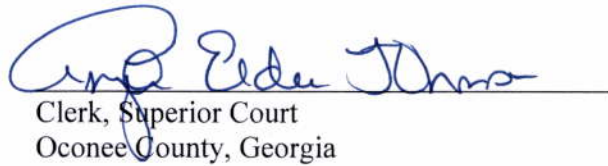 Angela Elder Johnson
Clerk, Superior Court
Oconee County, Georgia